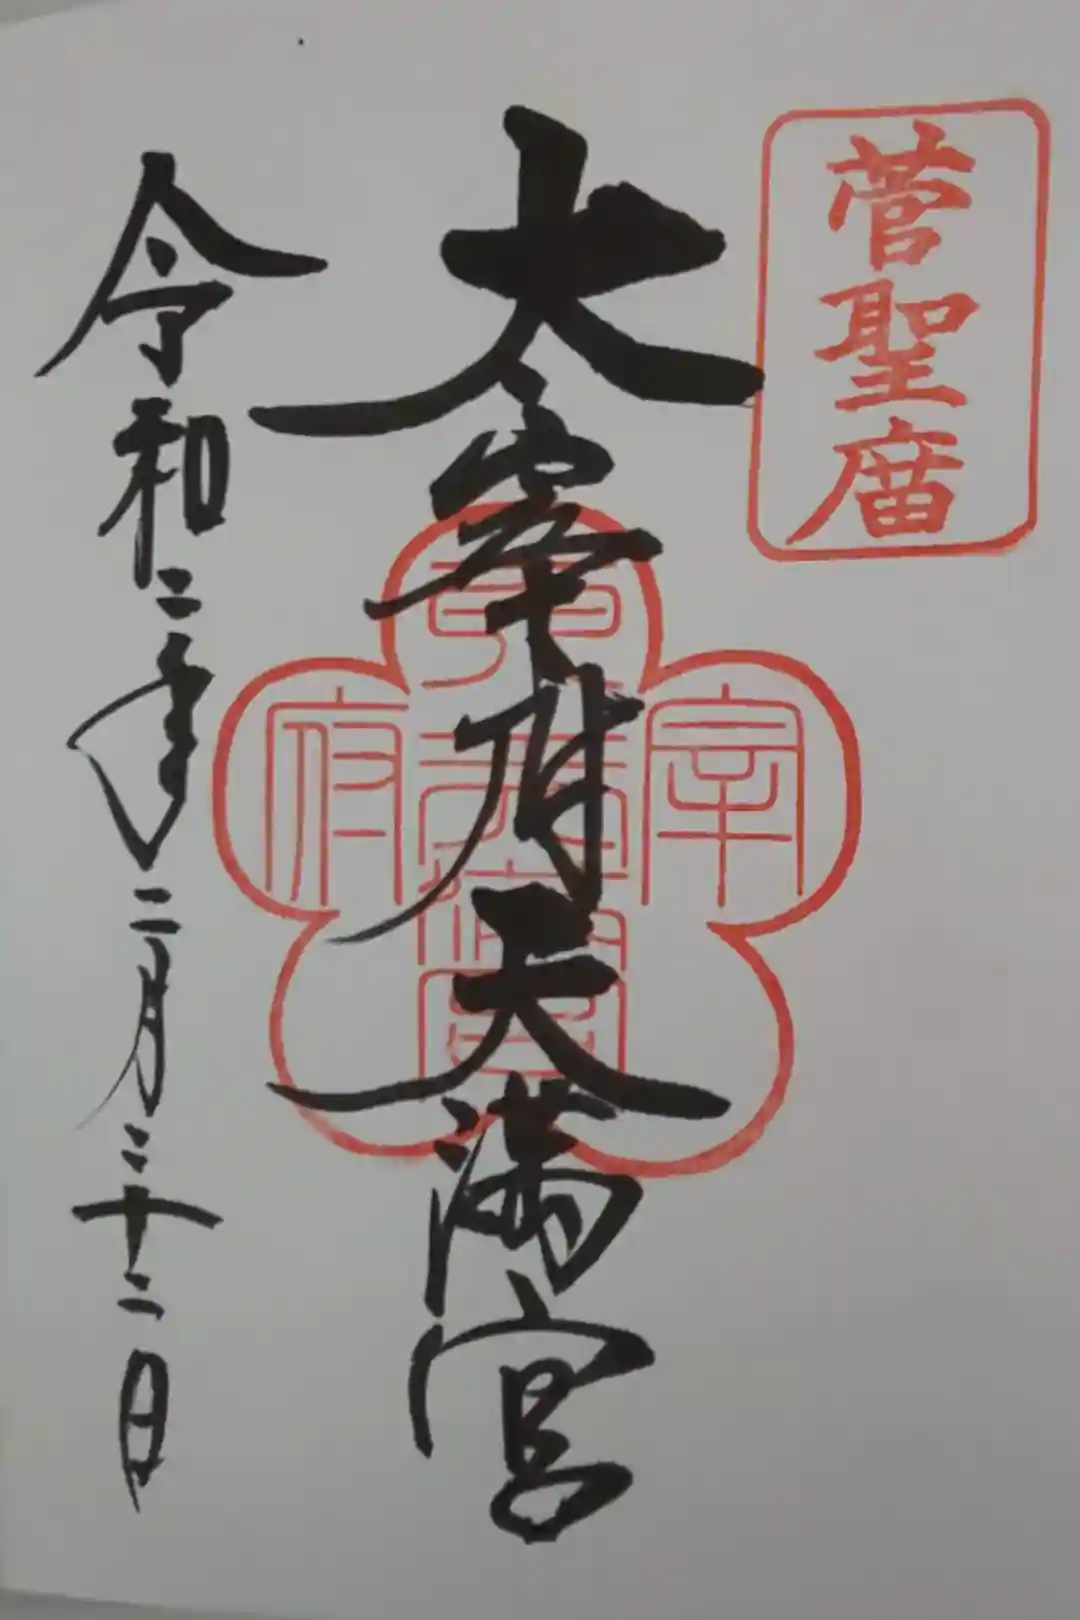 菅聖庿
太宰府天満宮
宰
府
天満宮
令和二年二月二十二日